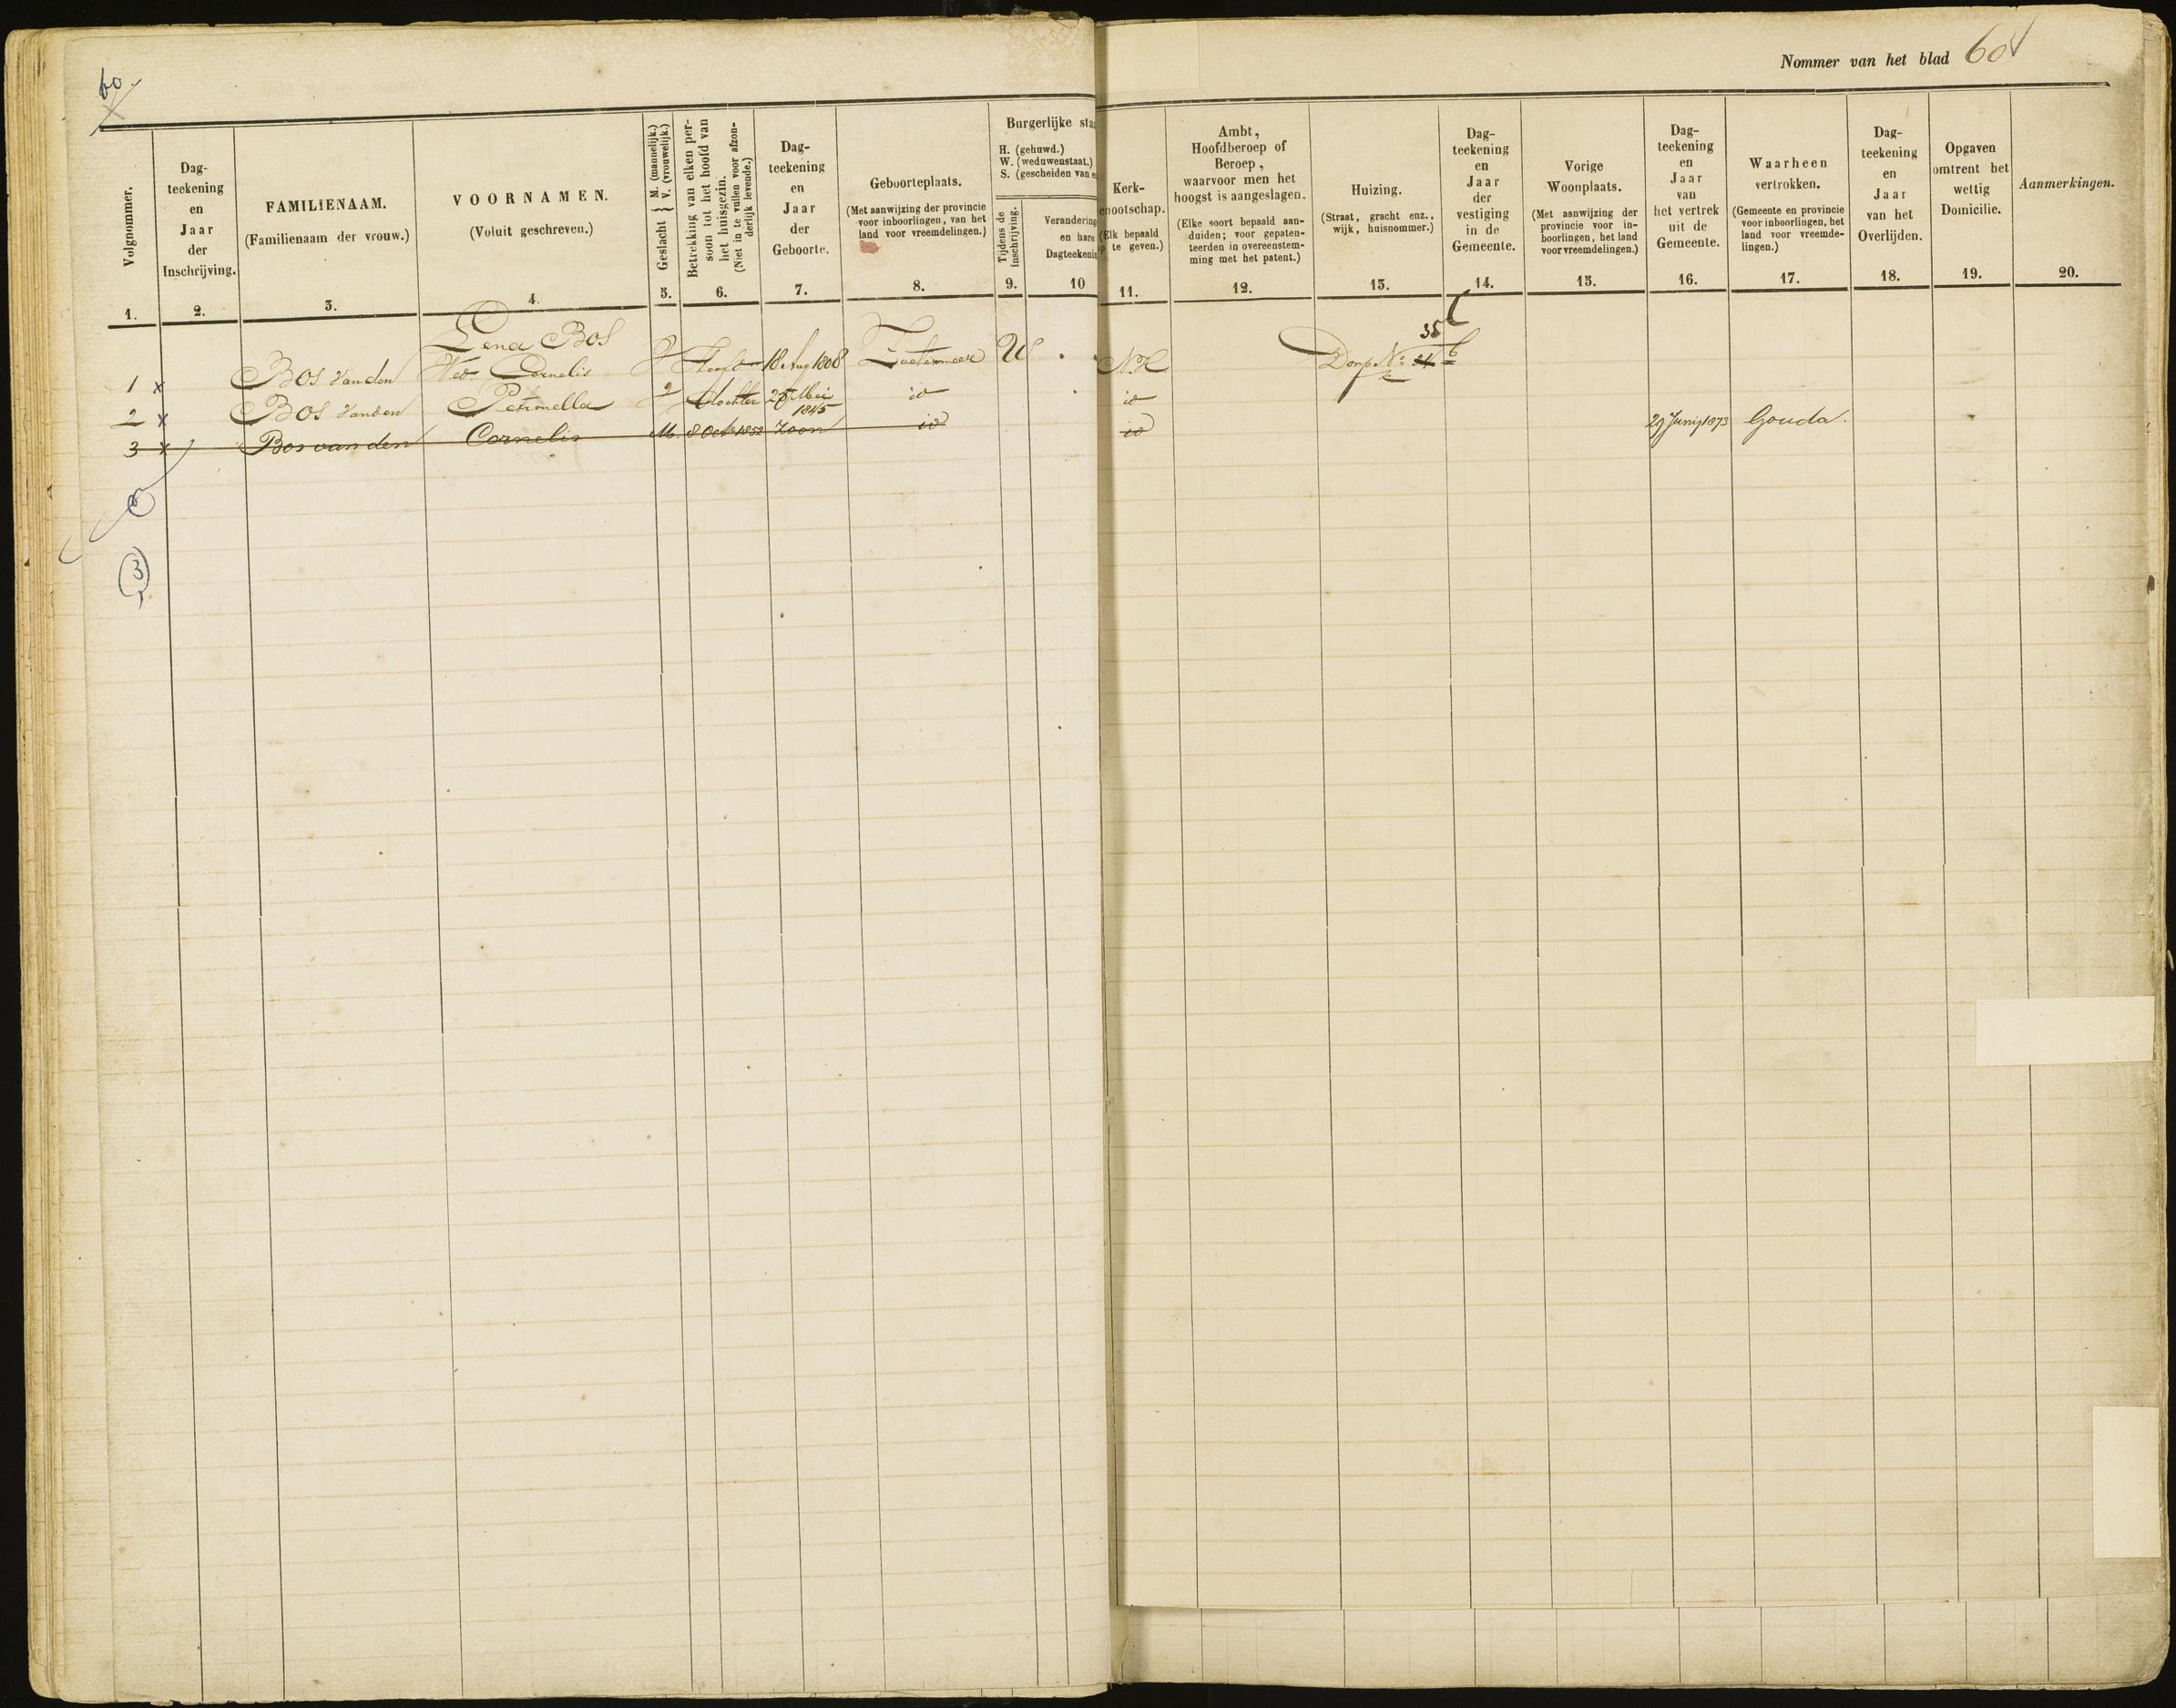 60.
Nommer van het blad 60
Volgnommer.
1.
Dag-
teekening
en
Jaar
der
Inschrijving.
2.
FAMILIENAAM.
(Familienaam der vrouw.)
3.
VOORNAMEN.
(Voluit geschreven.)
4.
Geslacht { M. (mannelijk.)
V. (vrouwelijk.)
5.
Betrekking van elken per-
soon tot het hoofd van
het huisgezin.
(Niet in te vullen voor afzon-
derlijk levende.)
6.
Dag-
teekening
en
Jaar
der
Geboorte.
7.
Geboorteplaats.
(Met aanwijzing der provincie
voor inboorlingen, van het
land voor vreemdelingen.)
8.
Burgerlijke sta
H. (gehuwd.)
W. (weduwenstaat.)
S. (gescheiden van e
Tijdens de
inschrijving.
9.
Verandering
en hare
Dagteekenin
10
Kerk-
enootschap.
(Elk bepaald
p te geven.)
11.
Ambt,
Hoofdberoep of
Beroep,
waarvoor men het
hoogst is aangeslagen.
(Elke soort bepaald aan-
duiden; voor gepaten-
teerden in overeenstem-
ming met het patent.)
12.
Huizing.
(Straat, gracht enz.,
wijk, huisnommer.)
13.
Dag-
teekening
en
Jaar
der
vestiging
in de
Gemeente.
14.
Vorige
Woonplaats.
(Met aanwijzing der
provincie voor in-
boorlingen, het land
voor vreemdelingen.)
15.
Dag-
teekening
en
Jaar
van
het vertrek
uit de
Gemeente.
16.
Waarheen
vertrokken.
(Gemeente en provincie
voor inboorlingen, het
land voor vreemde-
lingen.)
17.
Dag-
teekening
en
Jaar
van het
Overlijden.
18.
Opgaven
omtrent het
wettig
Domicilie.
19.
Aanmerkingen.
20.
Lena Bos
1 x Bos van den Wed. Cornelis V Hoofd 18 Aug 1808 Zoetermeer W NH Dorp No 35 b
2 x Bos van den Petronella V dochter 25 Mei 1845 id id
3 x Bos van den Cornelis M 8 Octb 1852 Zoon id id 29 Junij 1873 Gouda.
3